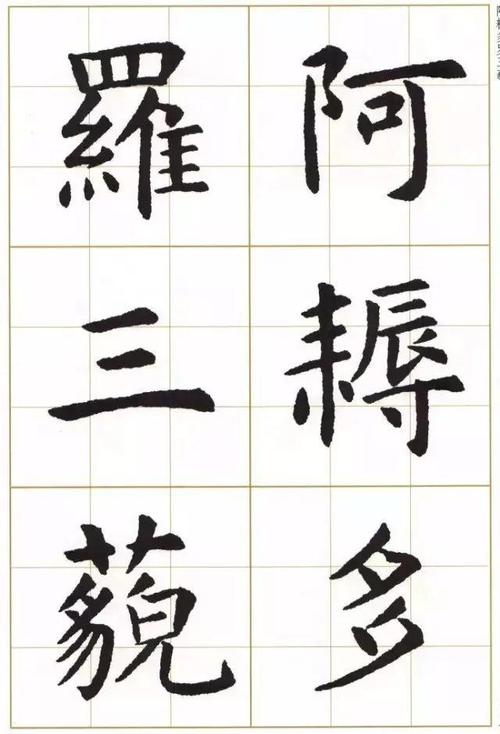 阿耨多
羅三藐